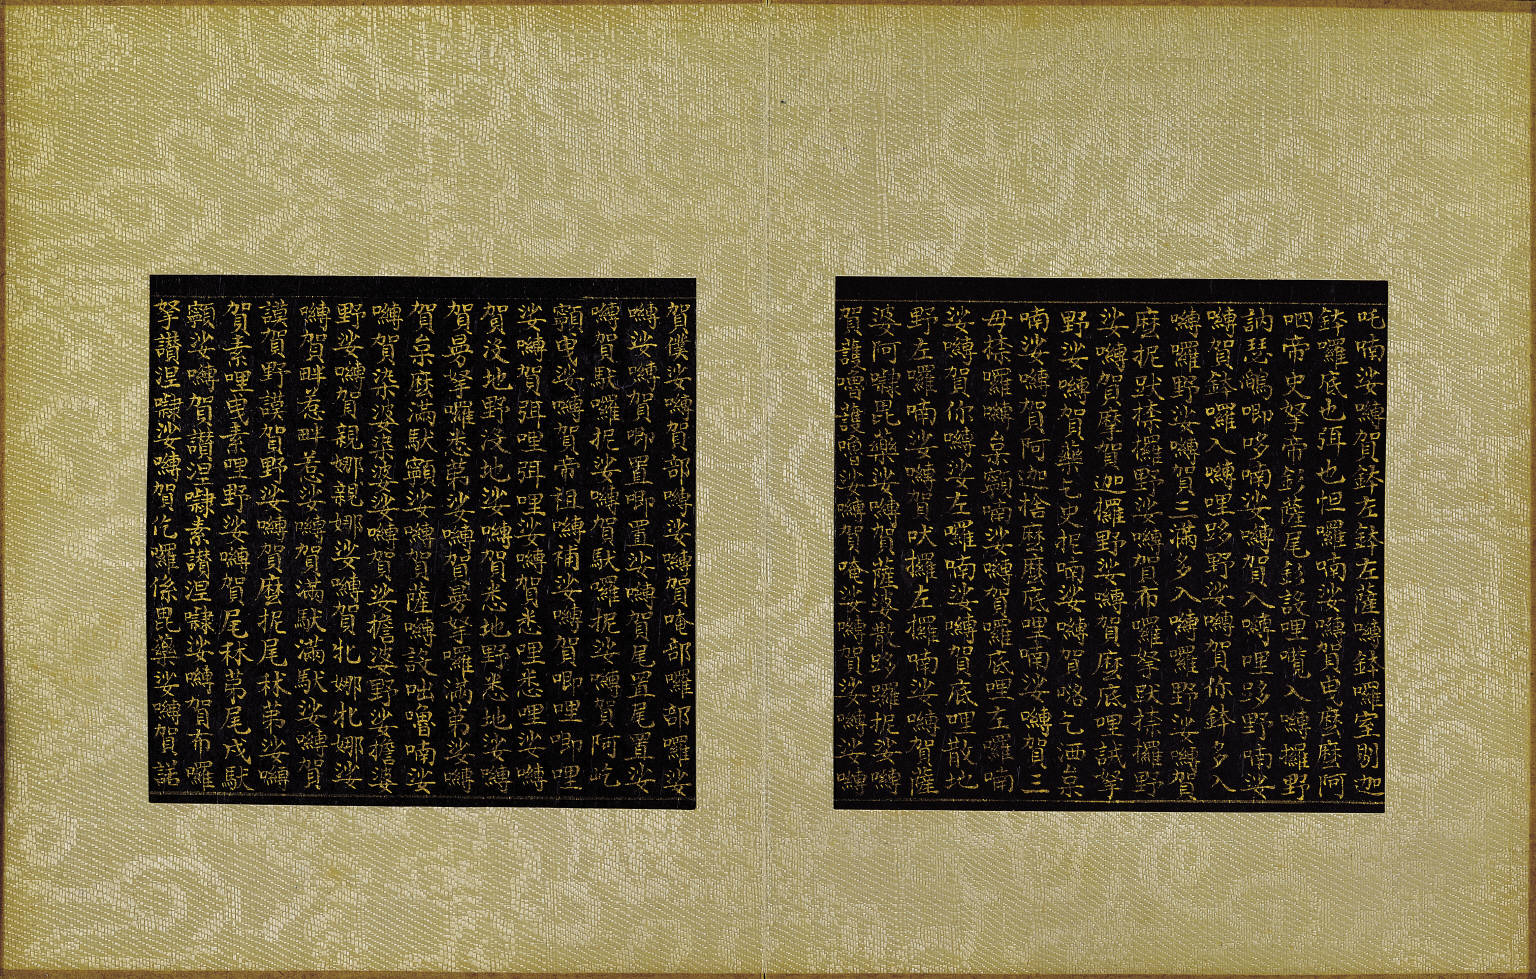 吒喃娑嚩賀鉢左鉢左薩嚩鉢囉室別迦
鉢囉底也弭也怛囉喃娑嚩賀曳麼麼阿
呬帝史拏帝彭薩尾彭設哩嚂入嚩攞野
訥瑟鵮唧哆喃娑嚩賀入嚩哩跢野喃娑
嚩賀鉢囉入嚩哩跢野娑嚩賀你鉢多入
嚩囉野娑嚩賀三滿多入嚩囉野娑嚩賀
麼抳跋捺攞野娑嚩賀布囉拏跋捺攞野
娑嚩賀摩賀迦攞野娑嚩賀麼底哩誐拏
野娑嚩賀藥乞史抳喃娑嚩賀咯乞洒枲
喃娑嚩賀阿迦捨麼麼底哩喃娑嚩賀三
母捺囉嚩枲顎喃娑嚩賀囉底哩左囉喃
娑嚩賀你嚩娑左囉喃娑嚩賀底哩散地
野左囉喃娑嚩賀吠攞左攞喃娑嚩賀薩
婆阿㘑毘藥娑嚩賀薩婆散跢囉抳娑嚩
賀護嚕護嚕娑嚩賀唵娑嚩賀娑嚩娑嚩
賀僕娑嚩賀部嚩娑嚩賀唵部囉部囉娑
嚩娑嚩賀唧置唧置娑嚩賀尾置尾置娑
嚩賀馱囉抳娑嚩賀馱囉抳娑嚩賀阿屹
顎曳娑嚩賀帝祖嚩補娑嚩賀唧哩唧哩
娑嚩賀弭哩弭哩娑嚩賀悉哩悉哩娑嚩
賀沒地野沒地娑嚩賀悉地野悉地娑嚩
賀曼拏囉悉第娑嚩賀曼拏囉滿第娑嚩
賀枲麼滿馱顎娑嚩賀薩嚩設咄嚕喃娑
嚩賀染婆染婆娑嚩賀娑擔婆野娑擔婆
野娑嚩賀親娜親娜娑嚩賀牝娜牝娜娑
嚩賀畔惹畔惹娑嚩賀滿馱滿馱娑嚩賀
謨賀野謨賀野娑嚩賀麼抳尾秫第娑嚩
賀素哩曳素哩野娑嚩賀尾秫第尾戍馱
顎娑嚩賀讃涅㘑素讃涅㘑娑嚩賀布囉
拏讃涅㘑娑嚩賀仡囉係毘藥娑嚩賀諾